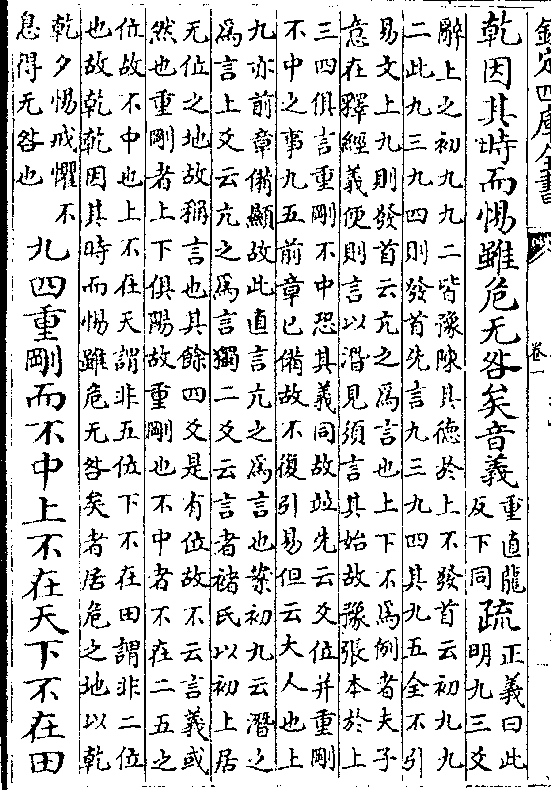 欽定四庫全書
卷一
乾因其時而惕雖危无咎矣音義
重直龍
反下同
疏
正義曰此
明九三爻
辭上之初九九二皆豫陳其德於上不發首云初九九
二此九三九四則發首先言九三九四其九五全不引
易文上九則發首云亢之為言也上下不為例者夫子
意在釋經義便則言以潛見須言其始故豫張本於上
三四俱言重剛不中恐其義同故竝先云爻位并重剛
不中之事九五前章已備故不復引易但云大人也上
九亦前章備顯故此直言亢之為言也案初九云潛之
為言上爻云亢之為言獨二爻云言者褚氏以初上居
无位之地故稱言也其餘四爻是有位故不云言義或
然也重剛者上下俱陽故重剛也不中者不在二五之
位故不中也上不在天謂非五位下不在田謂非二位
也故乾乾因其時而惕雖危无咎矣者居危之地以乾
乾夕惕戒懼不
息得无咎也
九四重剛而不中上不在天下不在田